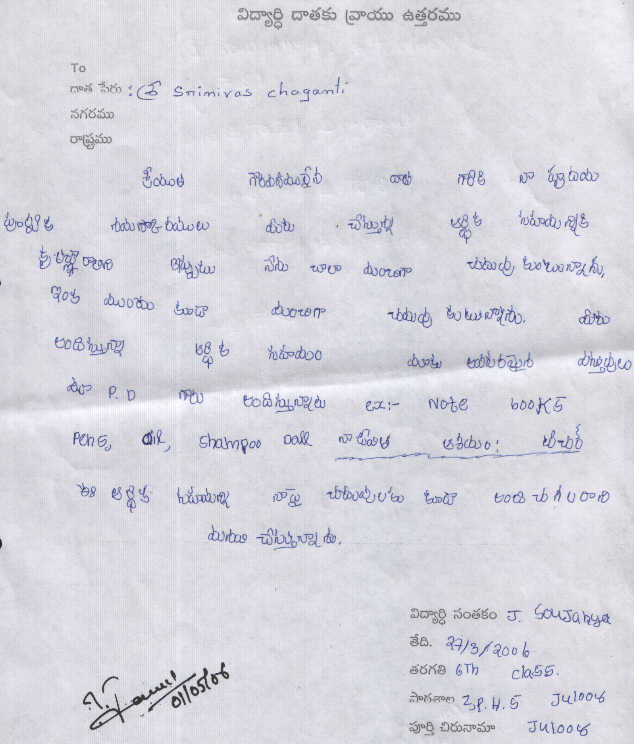 విద్యార్ధి దాతకు వ్రాయు ఉత్తరము
To
దాత పేరు : శ్రీ Srinivas chaganti
నగరము
రాష్ట్రము
గౌరవనీయులైన దాత గారికి నా హృదయ
పూర్వక నమస్కారములు మీరు చేస్తున్న ఆర్థిక సహాయానికి
ఇప్పుడు నేను చాలా మంచిగా చదువు కుంటున్నాను,
ఇంక ముందు కూడా మంచిగా చదువు కుటున్నాను. మీరు
అందిస్తున్నా ఆర్థిక సహాయం మాకు అవసరమైన వస్తువులు
మా P.D గారు అందిస్తున్నారు ex:- Note books
Pens, oil, shampoo నా జీవిత ఆశయం : టీచర్
ఈ ఆర్థిక సహాయాన్ని నాపై చదువులకు కూడా అందించగలరాని
మనవి చేస్తున్నాను.
విద్యార్ధి సంతకం J. Soujanya
తేది. 27/3/2006
తరగతి 6Th class.
పాఠశాల Z.P.H.S Juloor
పూర్తి చిరునామా Juloor
01/05/06